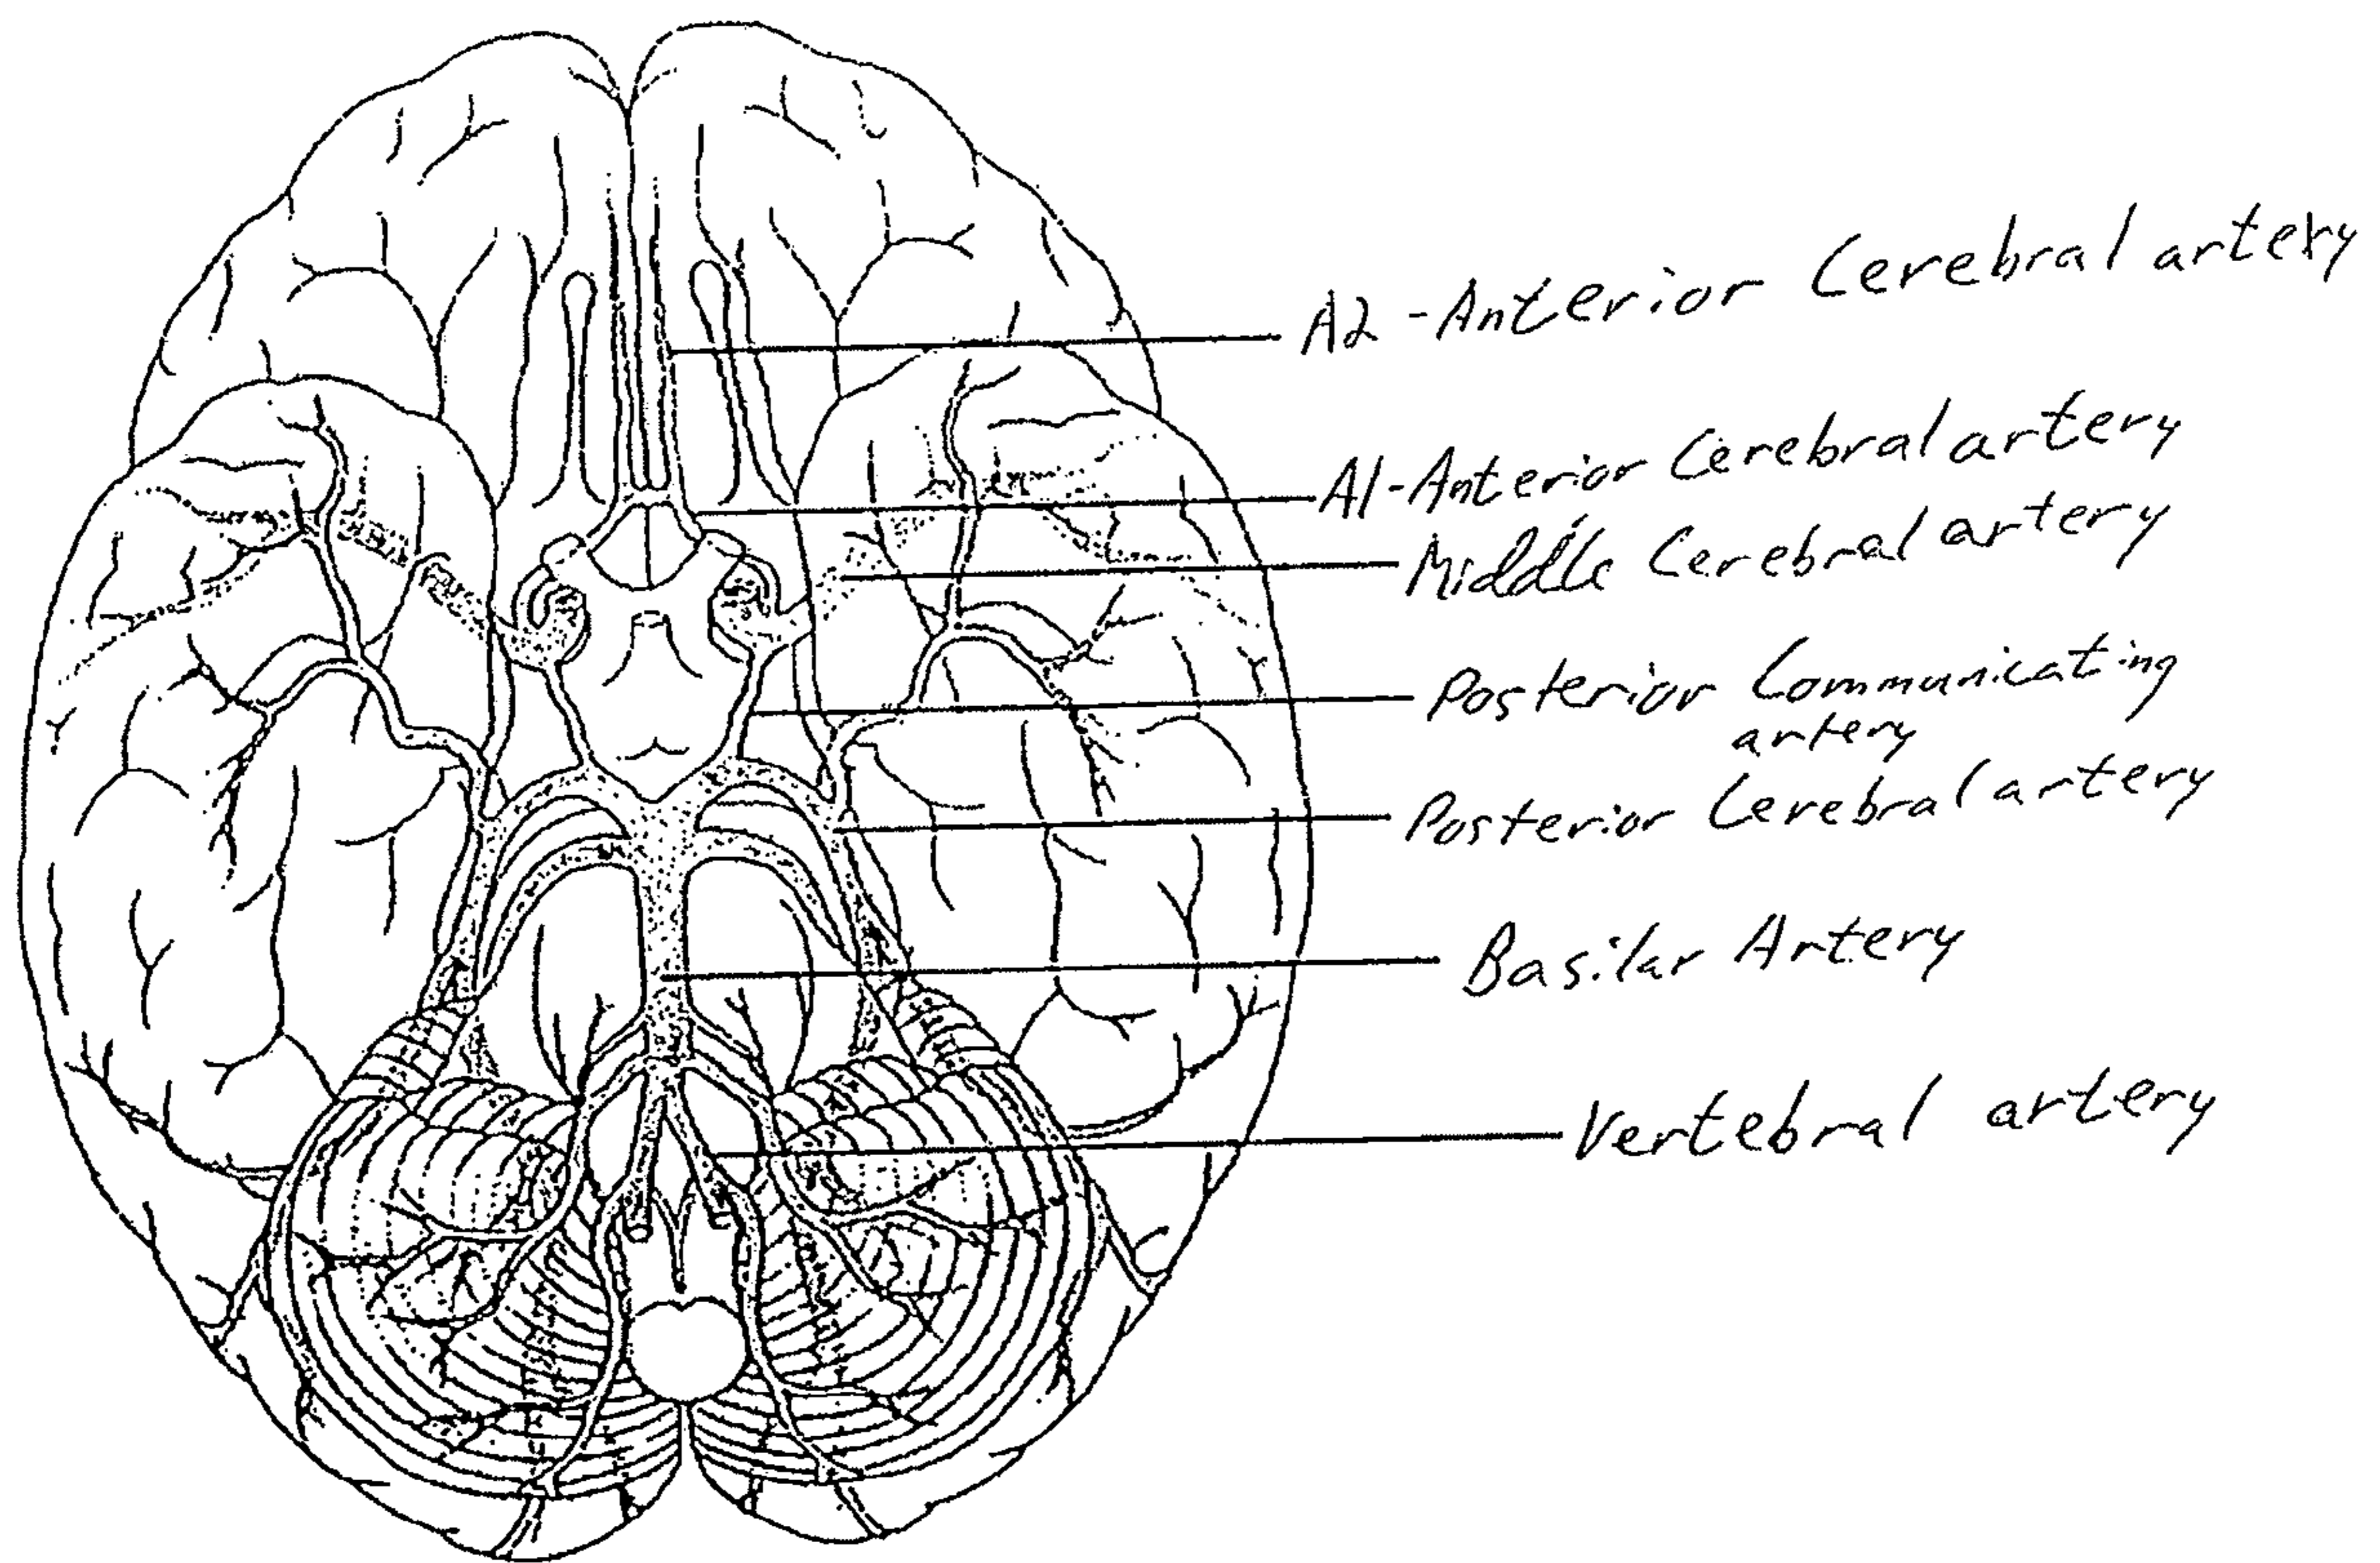 A2-Anterior Cerebral artery
A1-Anterior Cerebral artery
Middle Cerebral artery
Posterior Communicating
artery
Posterior Cerebral artery
Basilar Artery
Vertebral artery